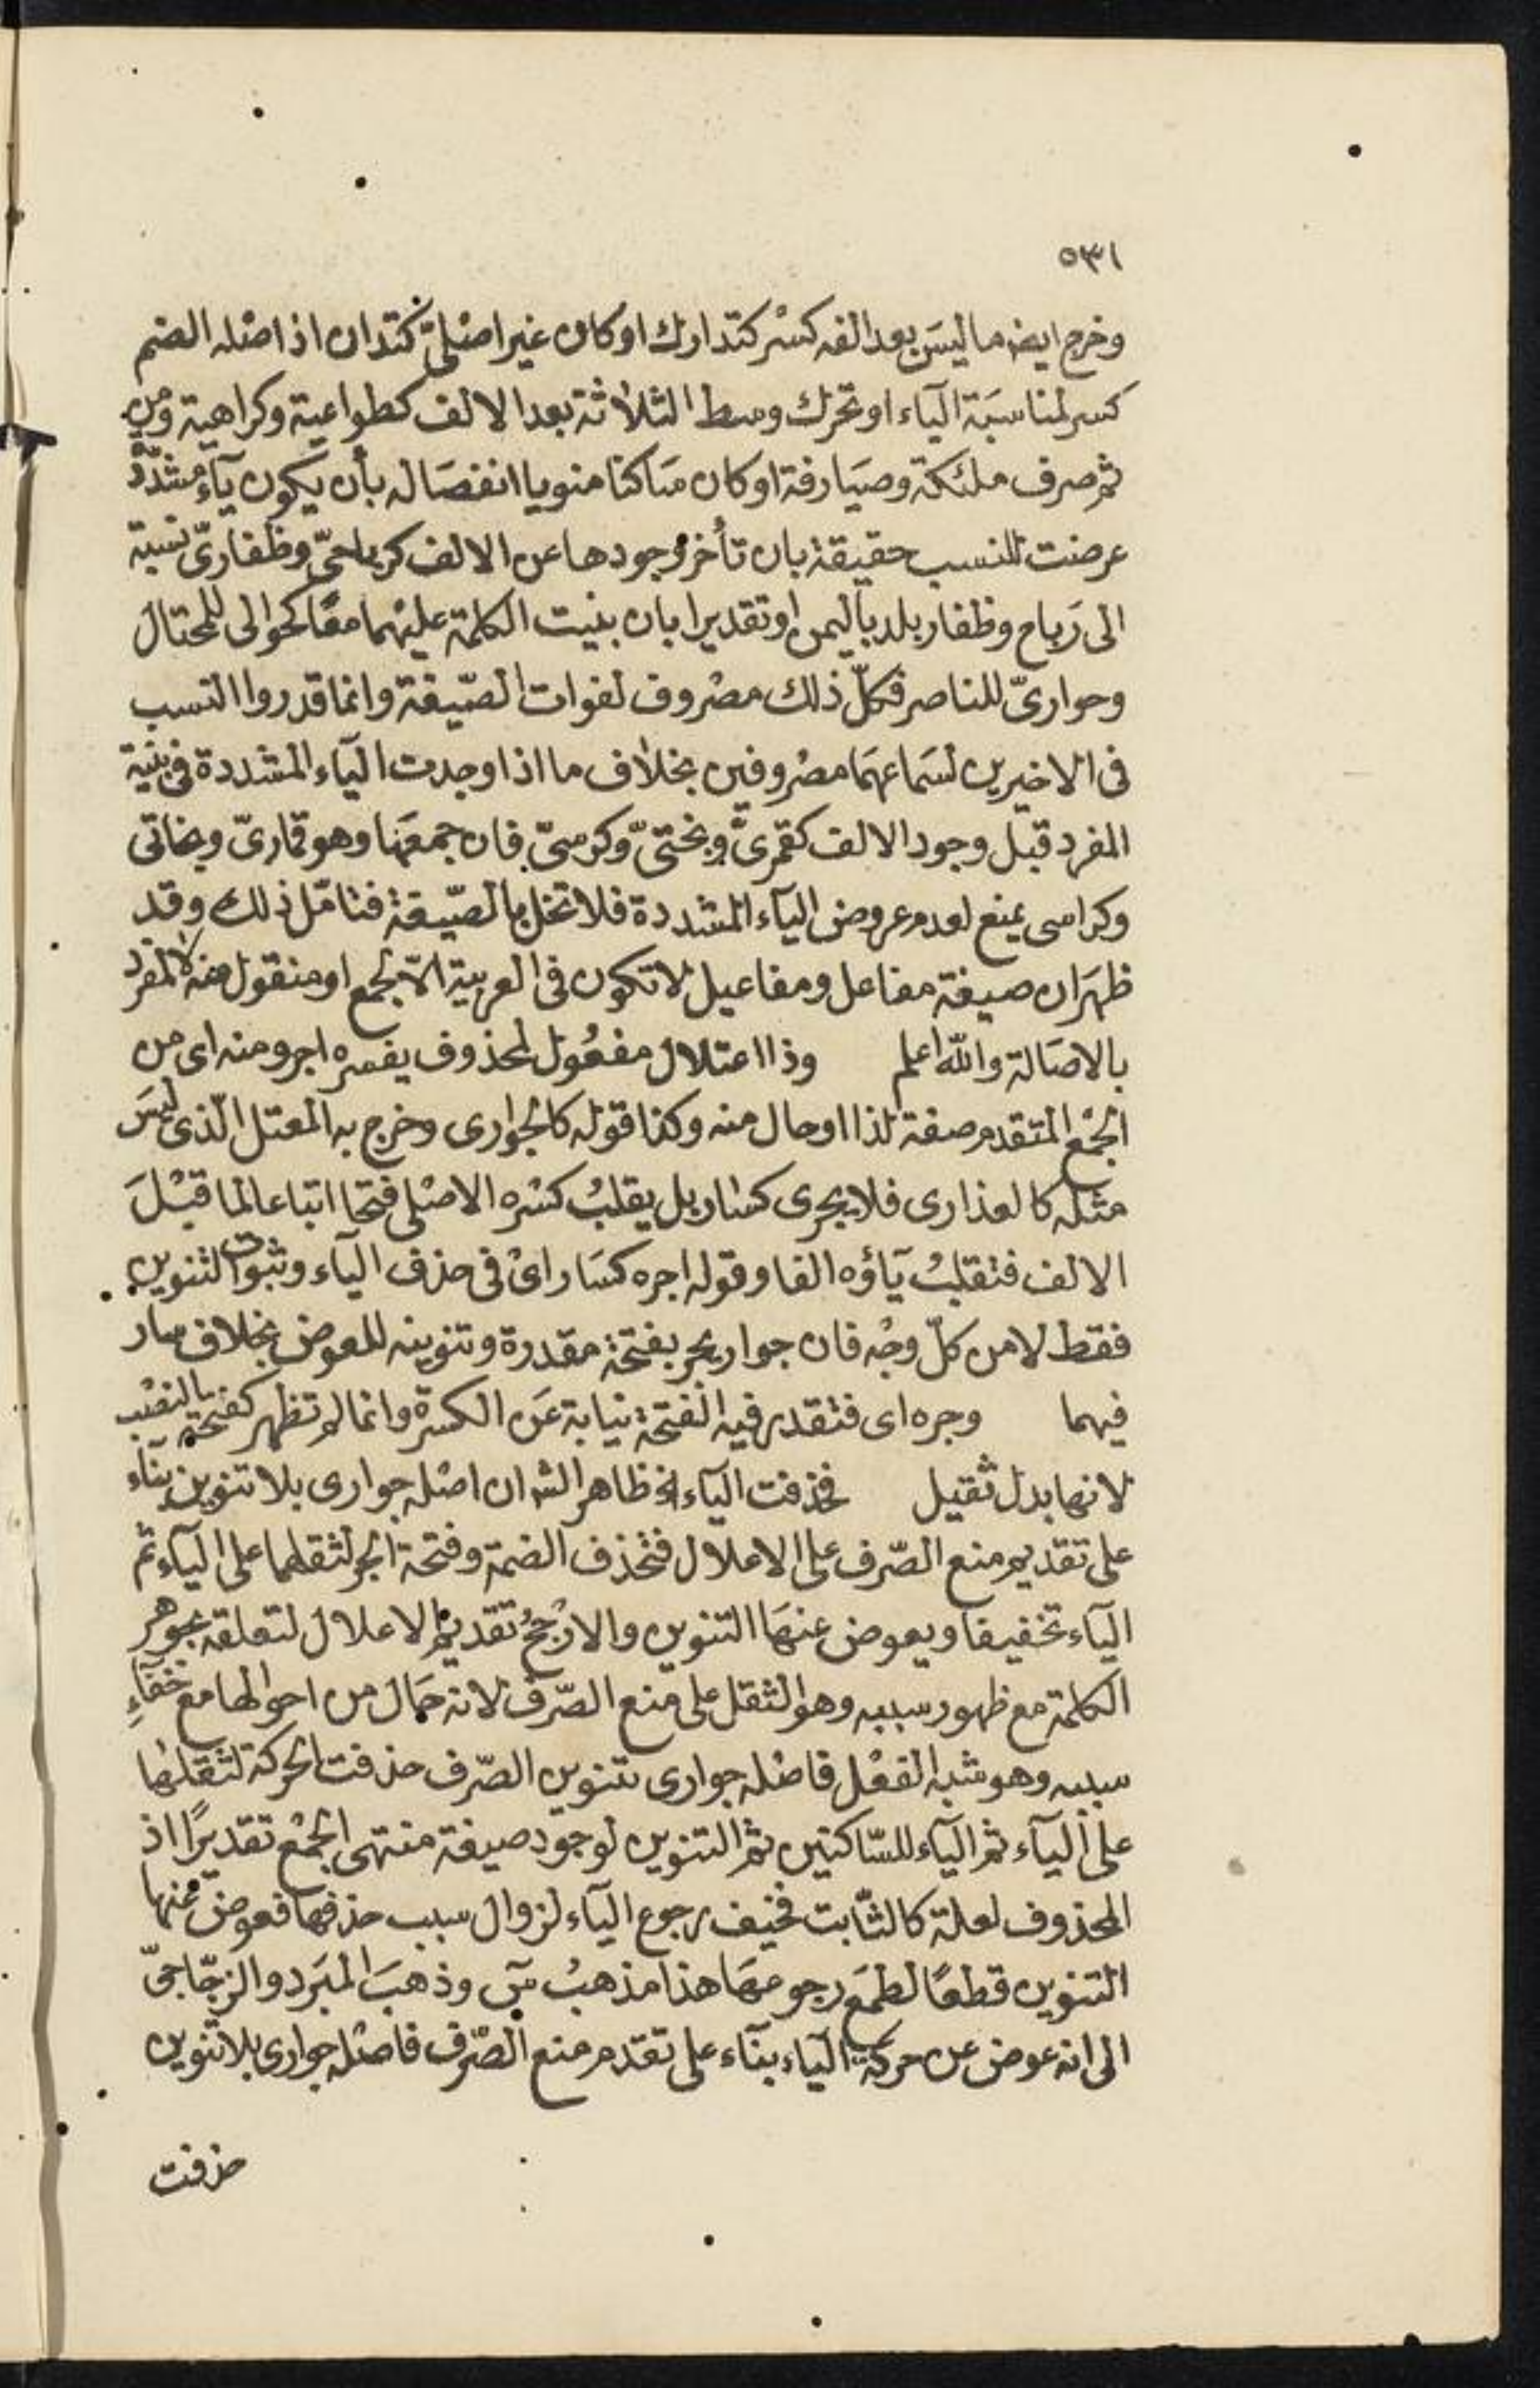 ٥٣١
وخرج ايضا ما ليسَ بعد الفه كسْر كتدارك او كان غير اصْليّ كتدان اذ اصْله الضم
كسر لمناسَبَة اليآء او تحرك وسط الثلاثة بعد الالف كطواعية وكراهية ومن
ثم صرف ملئكة وصيَارفة او كان سَاكنا منويا انفصَاله بأن يكون يآء مشدّدة
عرضت للنسب حقيقة بان تأخر وجودها عن الالف كرباحيّ وظفاريّ نسبة
الى رَباح وظفار بلد باليمن او تقديرا بان بنيت الكلمة عليْهما معًا كحوالى للمحتال
وحواريّ للناصر فكلّ ذلك مصْروف لفوات الصّيغة وانما قدروا النسب
فى الاخيرين لسَماعهمَا مصْروفين بخلاف ما اذا وجدت اليآء المشددة فى بنية
المفرد قبل وجود الالف كقمريّ وبختيّ وكرسيّ فان جمعَها وهو قماريّ وبخاتى
وكراسى يمنع لعدم عروض اليآء المشددة فلا تخل بالصّيغة فتامّل ذلك وقد
ظهَر ان صيغة مفاعل ومفاعيل لا تكون فى العربية الاّ لجمع او منقول منه لا لمفرد
بالاصَالة والله اعلم وذا اعتلال مفعُول لمحذوف يفسره اجر ومنه اى من
الجْمع المتقدم صفة لذا او حال منه وكذا قوله كالجوارى وخرج به المعتل الّذى ليسَ
مثله كالعذارى فلا يجرى كسار بل يقلبُ كسْره الاصْلى فتحا اتباعا لما قبْلَ
الالف فتقلبُ يَآؤه الفا وقوله اجره كسَار اىْ فى حذف اليآء وثبوت التنوين
فقط لا من كلّ وجْه فان جوار يجر بفتحة مقدرة وتنوينه للعوض بخلاف سار
فيهما وجره اى فتقدر فيه الفتحة نيابة عَن الكسرة وانما لم تظهر كفتحة النصْب
لانها بدل ثقيل فحذفت اليآء الخ ظاهر الشر ان اصْله جوارى بلا تنوين بنآء
على تقديم منع الصّرف على الاعلال فتحذف الضمة وفتحة الجر لثقلهما على اليآء ثم
اليآء تخفيفا ويعوض عنهَا التنوين والارْجحُ تقديمُ الاعلال لتعلقه بجوهر
الكلمة مع ظهور سببه وهو الثقل على منع الصّرف لانه حَال من احوالها مع خفآءِ
سببه وهو شبه الفعْل فاصْله جوارى بتنوين الصّرف حذفت الحركة لثقلهَا
على اليآء ثم اليآء للسّاكنين ثم التنوين لوجود صيغة منتهى الجْمع تقديرًا اذ
المحذوف لعلة كالثّابت فخيف رجوع اليآء لزوال سبب حذفها فعوض عنها
التنوين قطعًا لطمَع رجوعهَا هذا مذهبُ سٓ وذهبَ المبَرد والزجّاجيّ
الى انه عوض عن حركة اليآء بنآء على تقدم منع الصّرف فاصْله جوارى بلا تنوين
حذفت